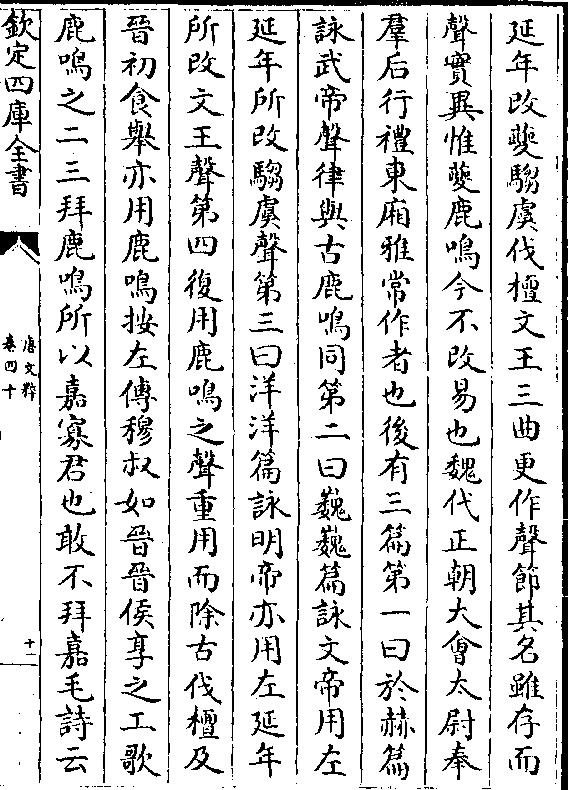 延年改夔騶虞伐檀文王三曲更作聲節其名雖存而
聲實異惟夔鹿鳴今不改易也魏代正朝大會太尉奉
羣后行禮東廂雅常作者也後有三篇第一曰於赫篇
詠武帝聲律與古鹿鳴同第二曰巍巍篇詠文帝用左
延年所改騶虞聲第三曰洋洋篇詠明帝亦用左延年
所改文王聲第四復用鹿鳴之聲重用而除古伐檀及
晉初食舉亦用鹿鳴按左傳穆叔如晉晉侯享之工歌
鹿鳴之二三拜鹿鳴所以嘉寡君也敢不拜嘉毛詩云
欽定四庫全書
唐文粹
卷四十
十一